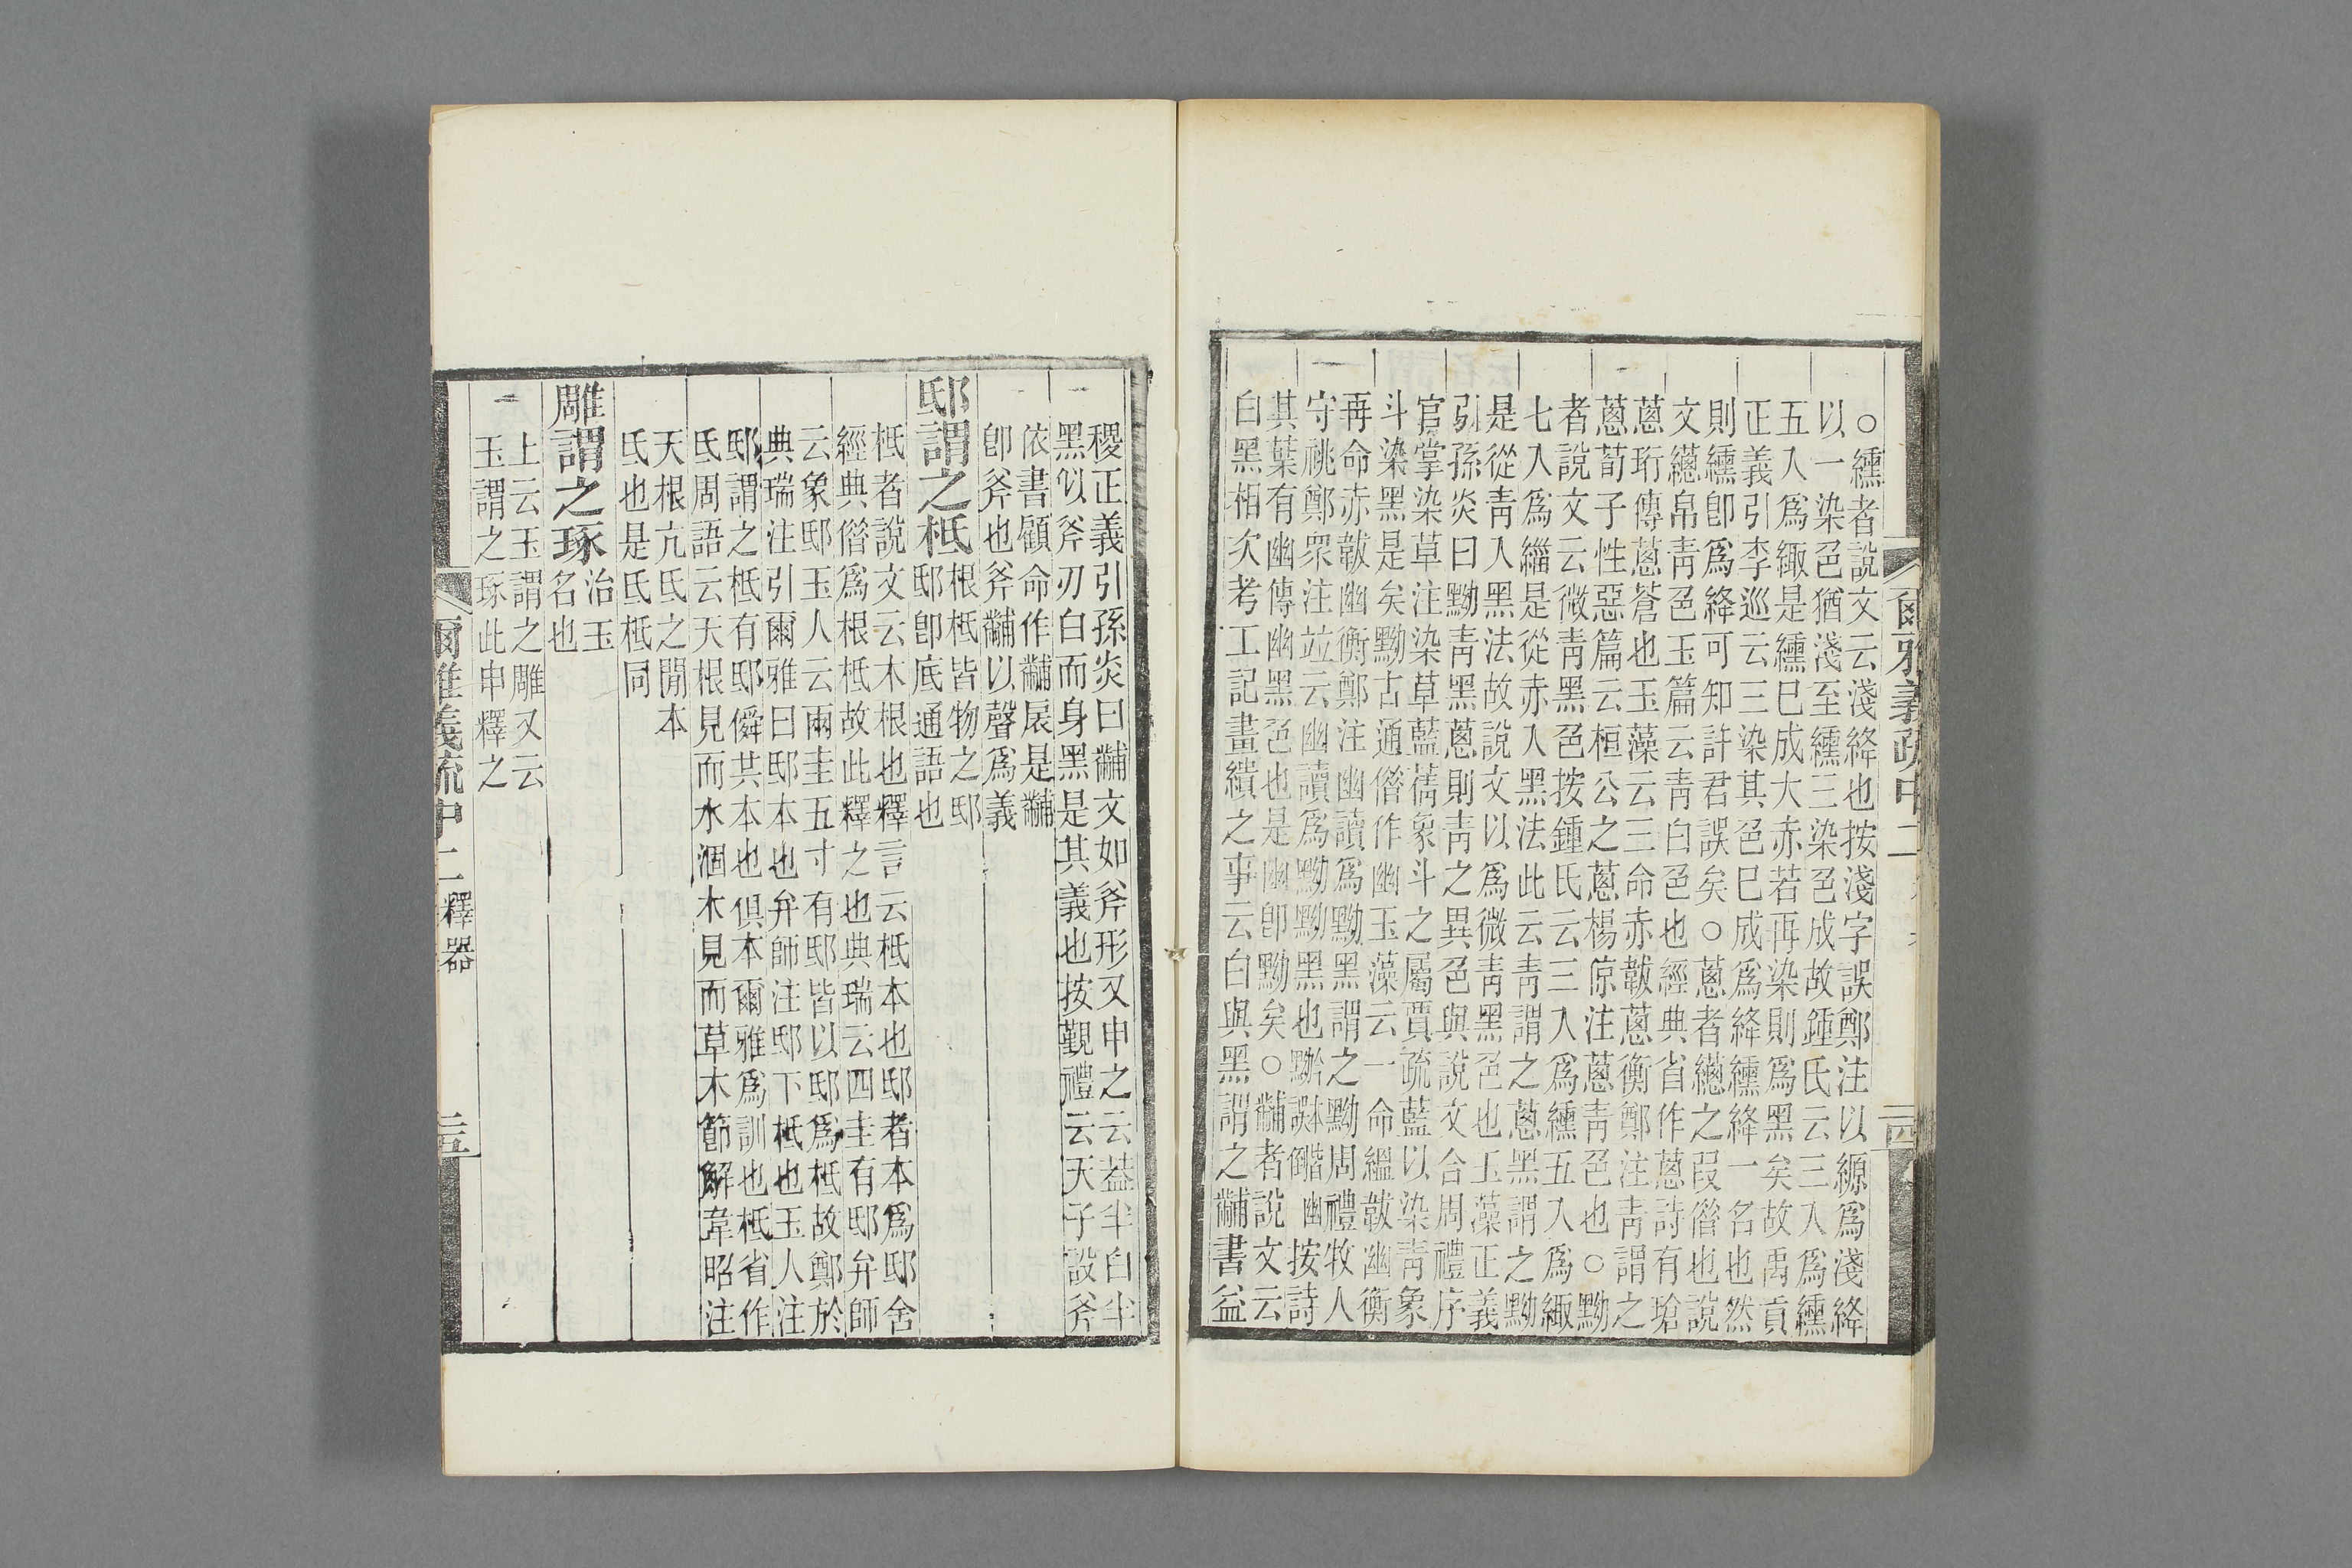 ○纁者說文云淺絳也按淺字誤鄭注以縓爲淺絳
以一染色猶淺至纁三染色成故鍾氏云三入爲纁
五入爲緅是纁巳成大赤若再染則爲黑矣故禹貢
正義引李巡云三染其色巳成爲絳纁絳一名也然
則纁卽爲絳可知許君誤矣○蔥者繱之叚借也說
文繱帛靑色玉篇云靑白色也經典省作蔥詩有瑲
蔥珩傳蔥蒼也玉藻云三命赤韍蔥衡鄭注靑謂之
蔥荀子性惡篇云桓公之蔥楊倞注蔥靑色也○黝
者說文云微靑黑色按鍾氏云三入爲纁五入爲緅
七入爲緇是從赤入黑法此云靑謂之蔥黑謂之黝
是從靑入黑法故說文以爲微靑黑色也玉藻正義
引孫炎曰黝靑黑蔥則靑之異色與說文合周禮序
官掌染草注染草藍蒨象斗之屬賈疏藍以染靑象
斗染黑是矣黝古通借作幽玉藻云一命縕韍幽衡
再命赤韍幽衡鄭注幽讀爲黝黑謂之黝周禮牧人
守祧鄭衆注竝云幽讀爲黝黝黑也幽按詩
其葉有幽傳幽黑色也是幽卽黝矣○黼者說文云
白黑相次考工記畫繢之事云白與黑謂之黼書益
爾雅義疏中二
二四
稷正義引孫炎曰黼文如斧形又申之云葢半白半
黑似斧刃白而身黑是其義也按覲禮云天子設斧
依書顧命作黼扆是黼
卽斧也斧黼以聲爲義
邸謂之柢
根柢皆物之邸
邸卽底通語也
柢者說文云木根也釋言云柢本也邸者本爲邸舍
經典借爲根柢故此釋之也典瑞云四圭有邸弁師
云象邸玉人云兩圭五寸有邸皆以邸爲柢故鄭於
典瑞注引爾雅曰邸本也弁師注邸下柢也玉人注
邸謂之柢有邸僢共本也俱本爾雅爲訓也柢省作
氐周語云天根見而水涸本見而草木節解韋昭注
天根亢氐之閒本
氐也是氐柢同
雕謂之琢
治玉
名也
上云玉謂之雕又云
玉謂之琢此申釋之
爾雅義疏中二釋器
二五